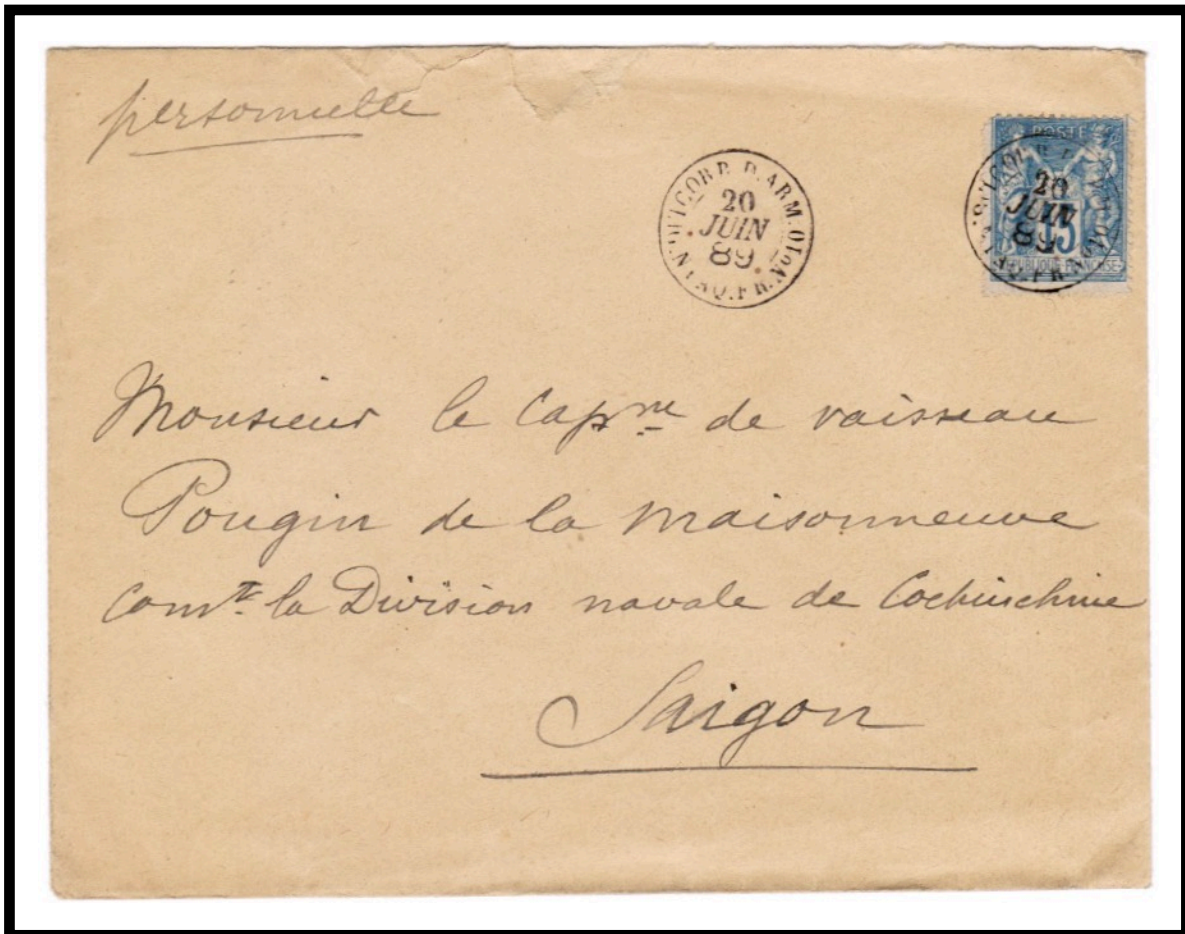 personnelle
CORR. D. ARM.
20
JUIN
89
POSTE
20
JUIN
89
15
Monsieur le Cap^ne de vaisseau
Pougin de la Maisonneuve
Com^t la Division navale de Cochinchine
Saigon